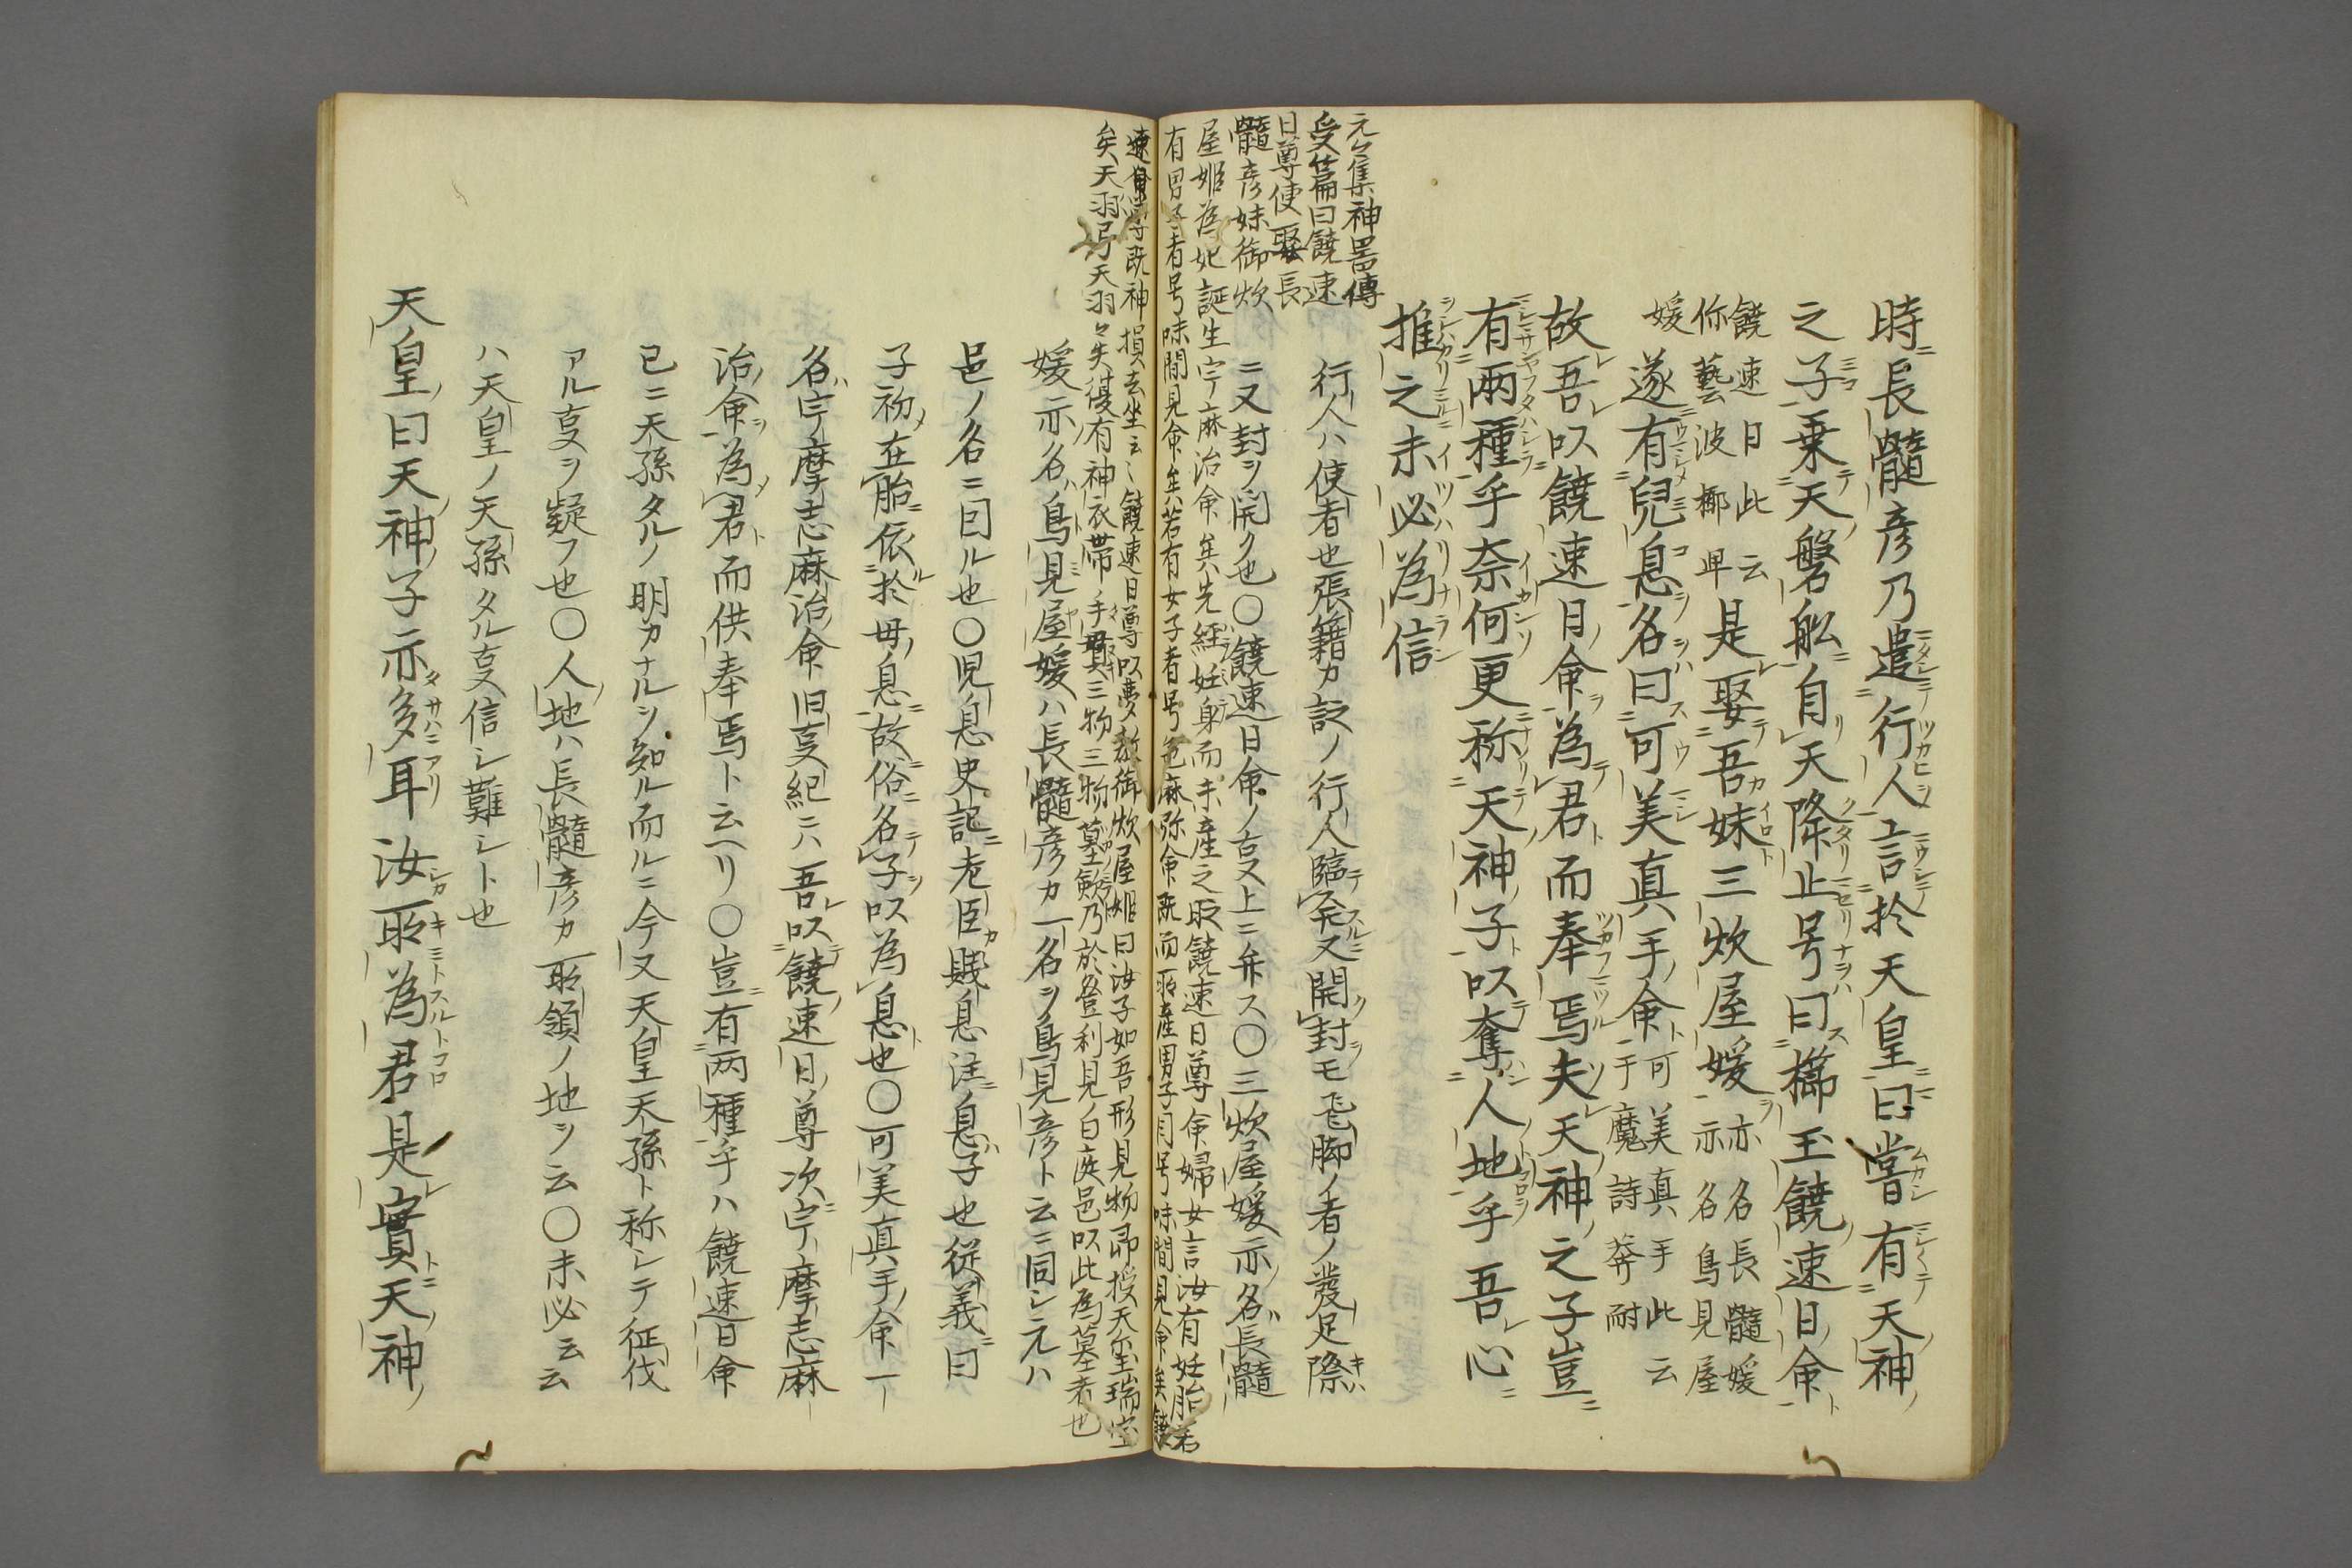 時長髓彦乃遣行人言於天皇曰嘗有天神
之子乗天磐舩自天降止号曰櫛玉饒速日命
饒速日此云
你藝波椰卑
是娶吾妹三炊屋媛
亦名長髓媛
亦名鳥見屋
媛
遂有兒息名曰可美真手命
可美真手此云
于魔詩莾耐
故吾以饒速日命為君而奉焉夫天神之子豈
有兩種乎奈何更称天神子以奪人地乎吾心
推之未必為信
行人ハ使者也張籍カ詩ノ行人臨発又開封モ飛脚ノ者ノ發足際
ニ又封ヲ開ク也〇饒速日命ノ㕝上ニ弁ス〇三炊屋媛亦名長髓
元々集神器傳
受篇曰饒速
日尊使娶長
髓彦妹御炊
屋姫為妃誕生宇麻治命矣先経妊身而未産之取饒速日尊命婦女言汝有妊胎若
有男子者号味間見命矣若有女子者号色麻弥命既而所産男子因号味間見命矣饒
速日尊既神損去坐云々饒速日尊以夢教御炊屋姫曰汝子如吾形見物即授天璽瑞宝
矣天羽弓天羽々矢復有神衣帯手貫三物三物墓斂乃於登利見白庭邑以此為墓者也
媛亦名鳥見屋媛ハ長髓彦カ一名ヲ鳥見彦ト云ニ同シ元ハ
邑ノ名ニ曰ル也〇児息史記ニ老臣カ賤息注息子也従義曰
子初在胎依於母息故俗名子以為息也〇可美真手命一
名宇摩志麻治命旧㕝紀ニハ吾以饒速日尊次宇摩志麻
治命為君而供奉焉ト云ヘリ〇豈有两種乎ハ饒速日命
已ニ天孫タルノ明カナルヲ知ル而ルニ今又天皇天孫ト称シテ征伐
アル㕝ヲ疑フ也〇人地ハ長髓彦カ所領ノ地ヲ云〇未必云云
ハ天皇ノ天孫タル㕝信シ難シト也
天皇曰天神子亦多耳汝所為君是實天神